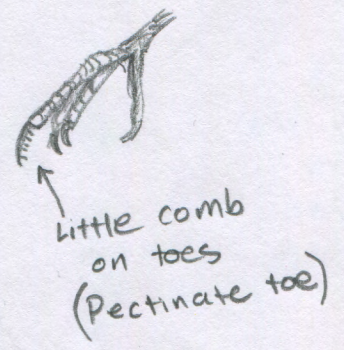 Little comb
on toes
(Pectinate toe)